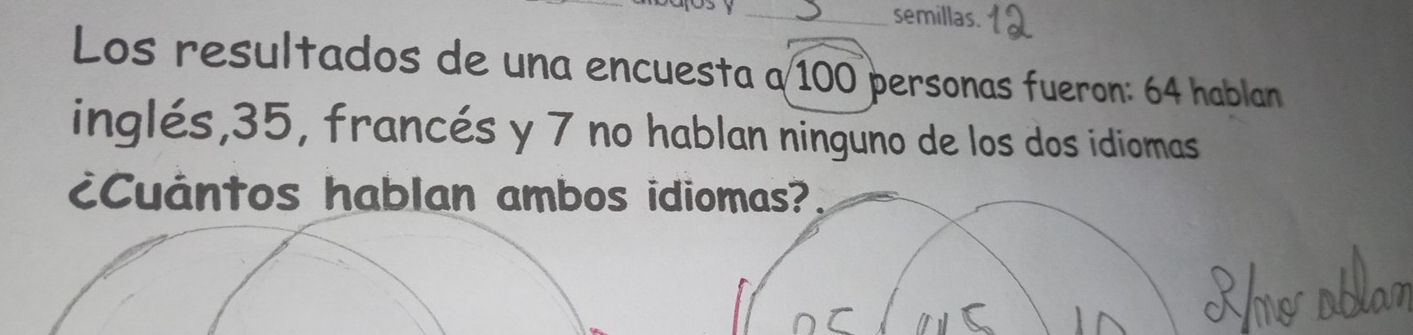 semillas. 12
Los resultados de una encuesta a 100 personas fueron: 64 hablan
inglés,35, francés y 7 no hablan ninguno de los dos idiomas
¿Cuántos hablan ambos idiomas?.
R/no ablan